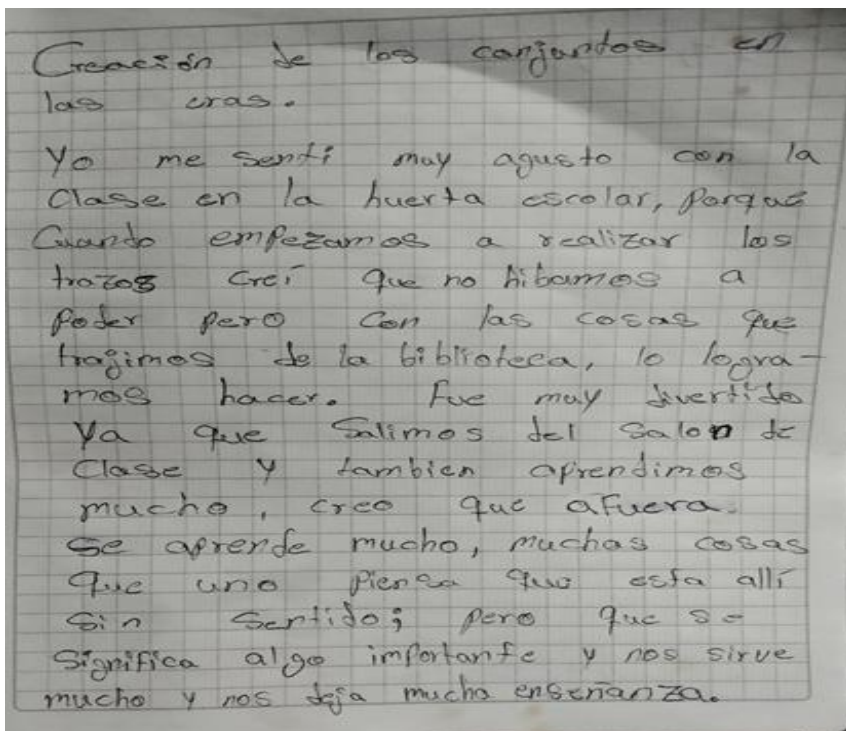 Creación de los conjuntos en
las eras.
Yo me sentí muy agusto con la
Clase en la huerta escolar, porque
Cuando empezamos a realizar los
trazos creí que no hibamos a
poder pero con las cosas que
trajimos de la biblioteca, lo logra-
mos hacer. Fue muy divertido
Ya que salimos del salon de
Clase y tambien aprendimos
mucho, creo que afuera
se aprende mucho, muchas cosas
que uno piensa que esta allí
sin sentido; pero que se
significa algo importante y nos sirve
mucho y nos deja mucha enseñanza.